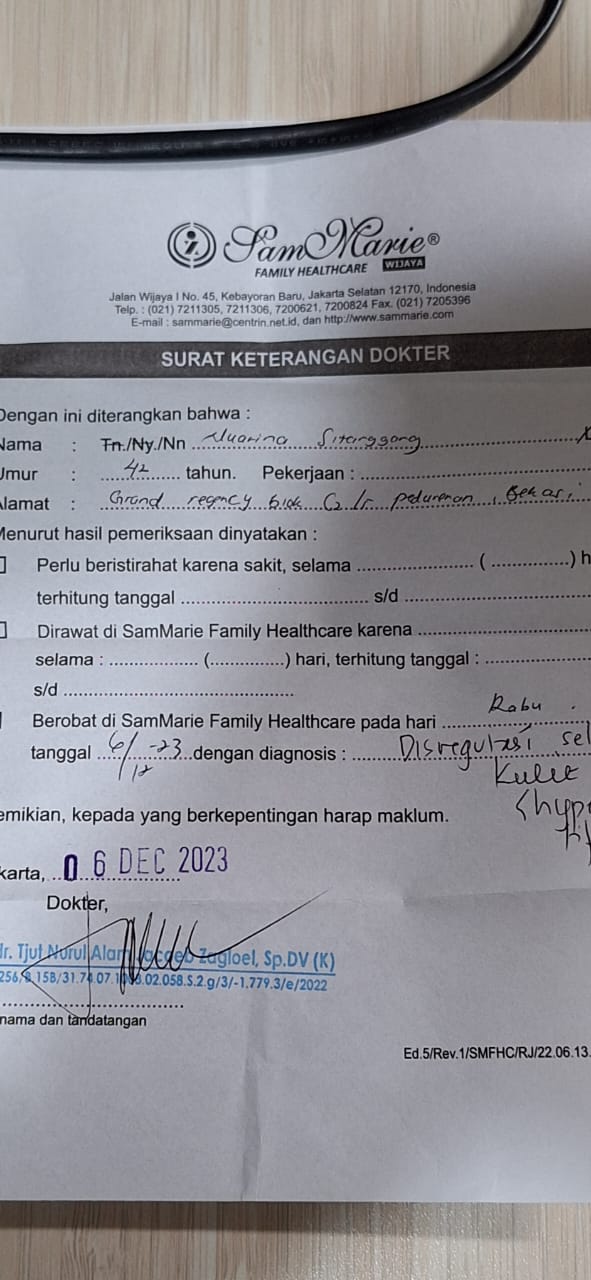 SamMarie®
FAMILY HEALTHCARE WIJAYA
Jalan Wijaya I No. 45, Kebayoran Baru, Jakarta Selatan 12170, Indonesia
Telp. : (021) 7211305, 7211306, 7200621, 7200824 Fax. (021) 7205396
E-mail : sammarie@centrin.net.id, dan http://www.sammarie.com
SURAT KETERANGAN DOKTER
Dengan ini diterangkan bahwa :
Nama : Tn./Ny./Nn Sitanggang
Umur : 42 tahun. Pekerjaan :
Alamat : Grand regency blok pedurenan, Bekasi
Menurut hasil pemeriksaan dinyatakan :
Perlu beristirahat karena sakit, selama ( ) h
terhitung tanggal s/d
Dirawat di SamMarie Family Healthcare karena
selama : ( ) hari, terhitung tanggal :
s/d
Berobat di SamMarie Family Healthcare pada hari Rabu
tanggal 6/12-23 dengan diagnosis : Disregulasi sel
Kulit
emikian, kepada yang berkepentingan harap maklum.
karta, 06 DEC 2023
Dokter,
dr. Tjut Nurul Alam Zagloel, Sp.DV (K)
.02.058.S.2.g/3/-1.779.3/e/2022
nama dan tandatangan
Ed.5/Rev.1/SMFHC/RJ/22.06.13